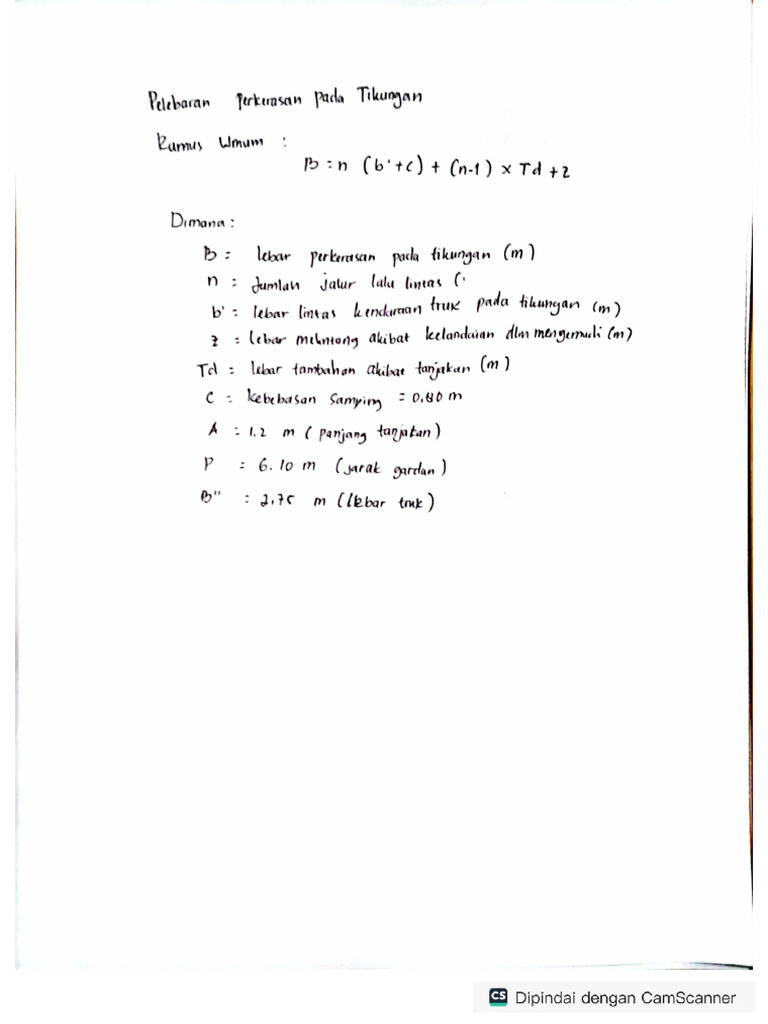 Pelebaran Perkerasan pada Tikungan
Rumus Umum :
B = n (b' + c) + (n-1) x Td + z
Dimana :
B = lebar perkerasan pada tikungan (m)
n : Jumlah jalur lalu lintas (
b' = lebar lintas kendaraan truk pada tikungan (m)
z : lebar melintang akibat keelandaian dlm mengemudi (m)
Td : lebar tambahan akibat tanjakan (m)
C : kebebasan samping = 0,80 m
A : 1.2 m (panjang tanjakan)
P : 6.10 m (jarak gardan)
B'' : 2.75 m (lebar truk)
CS Dipindai dengan CamScanner